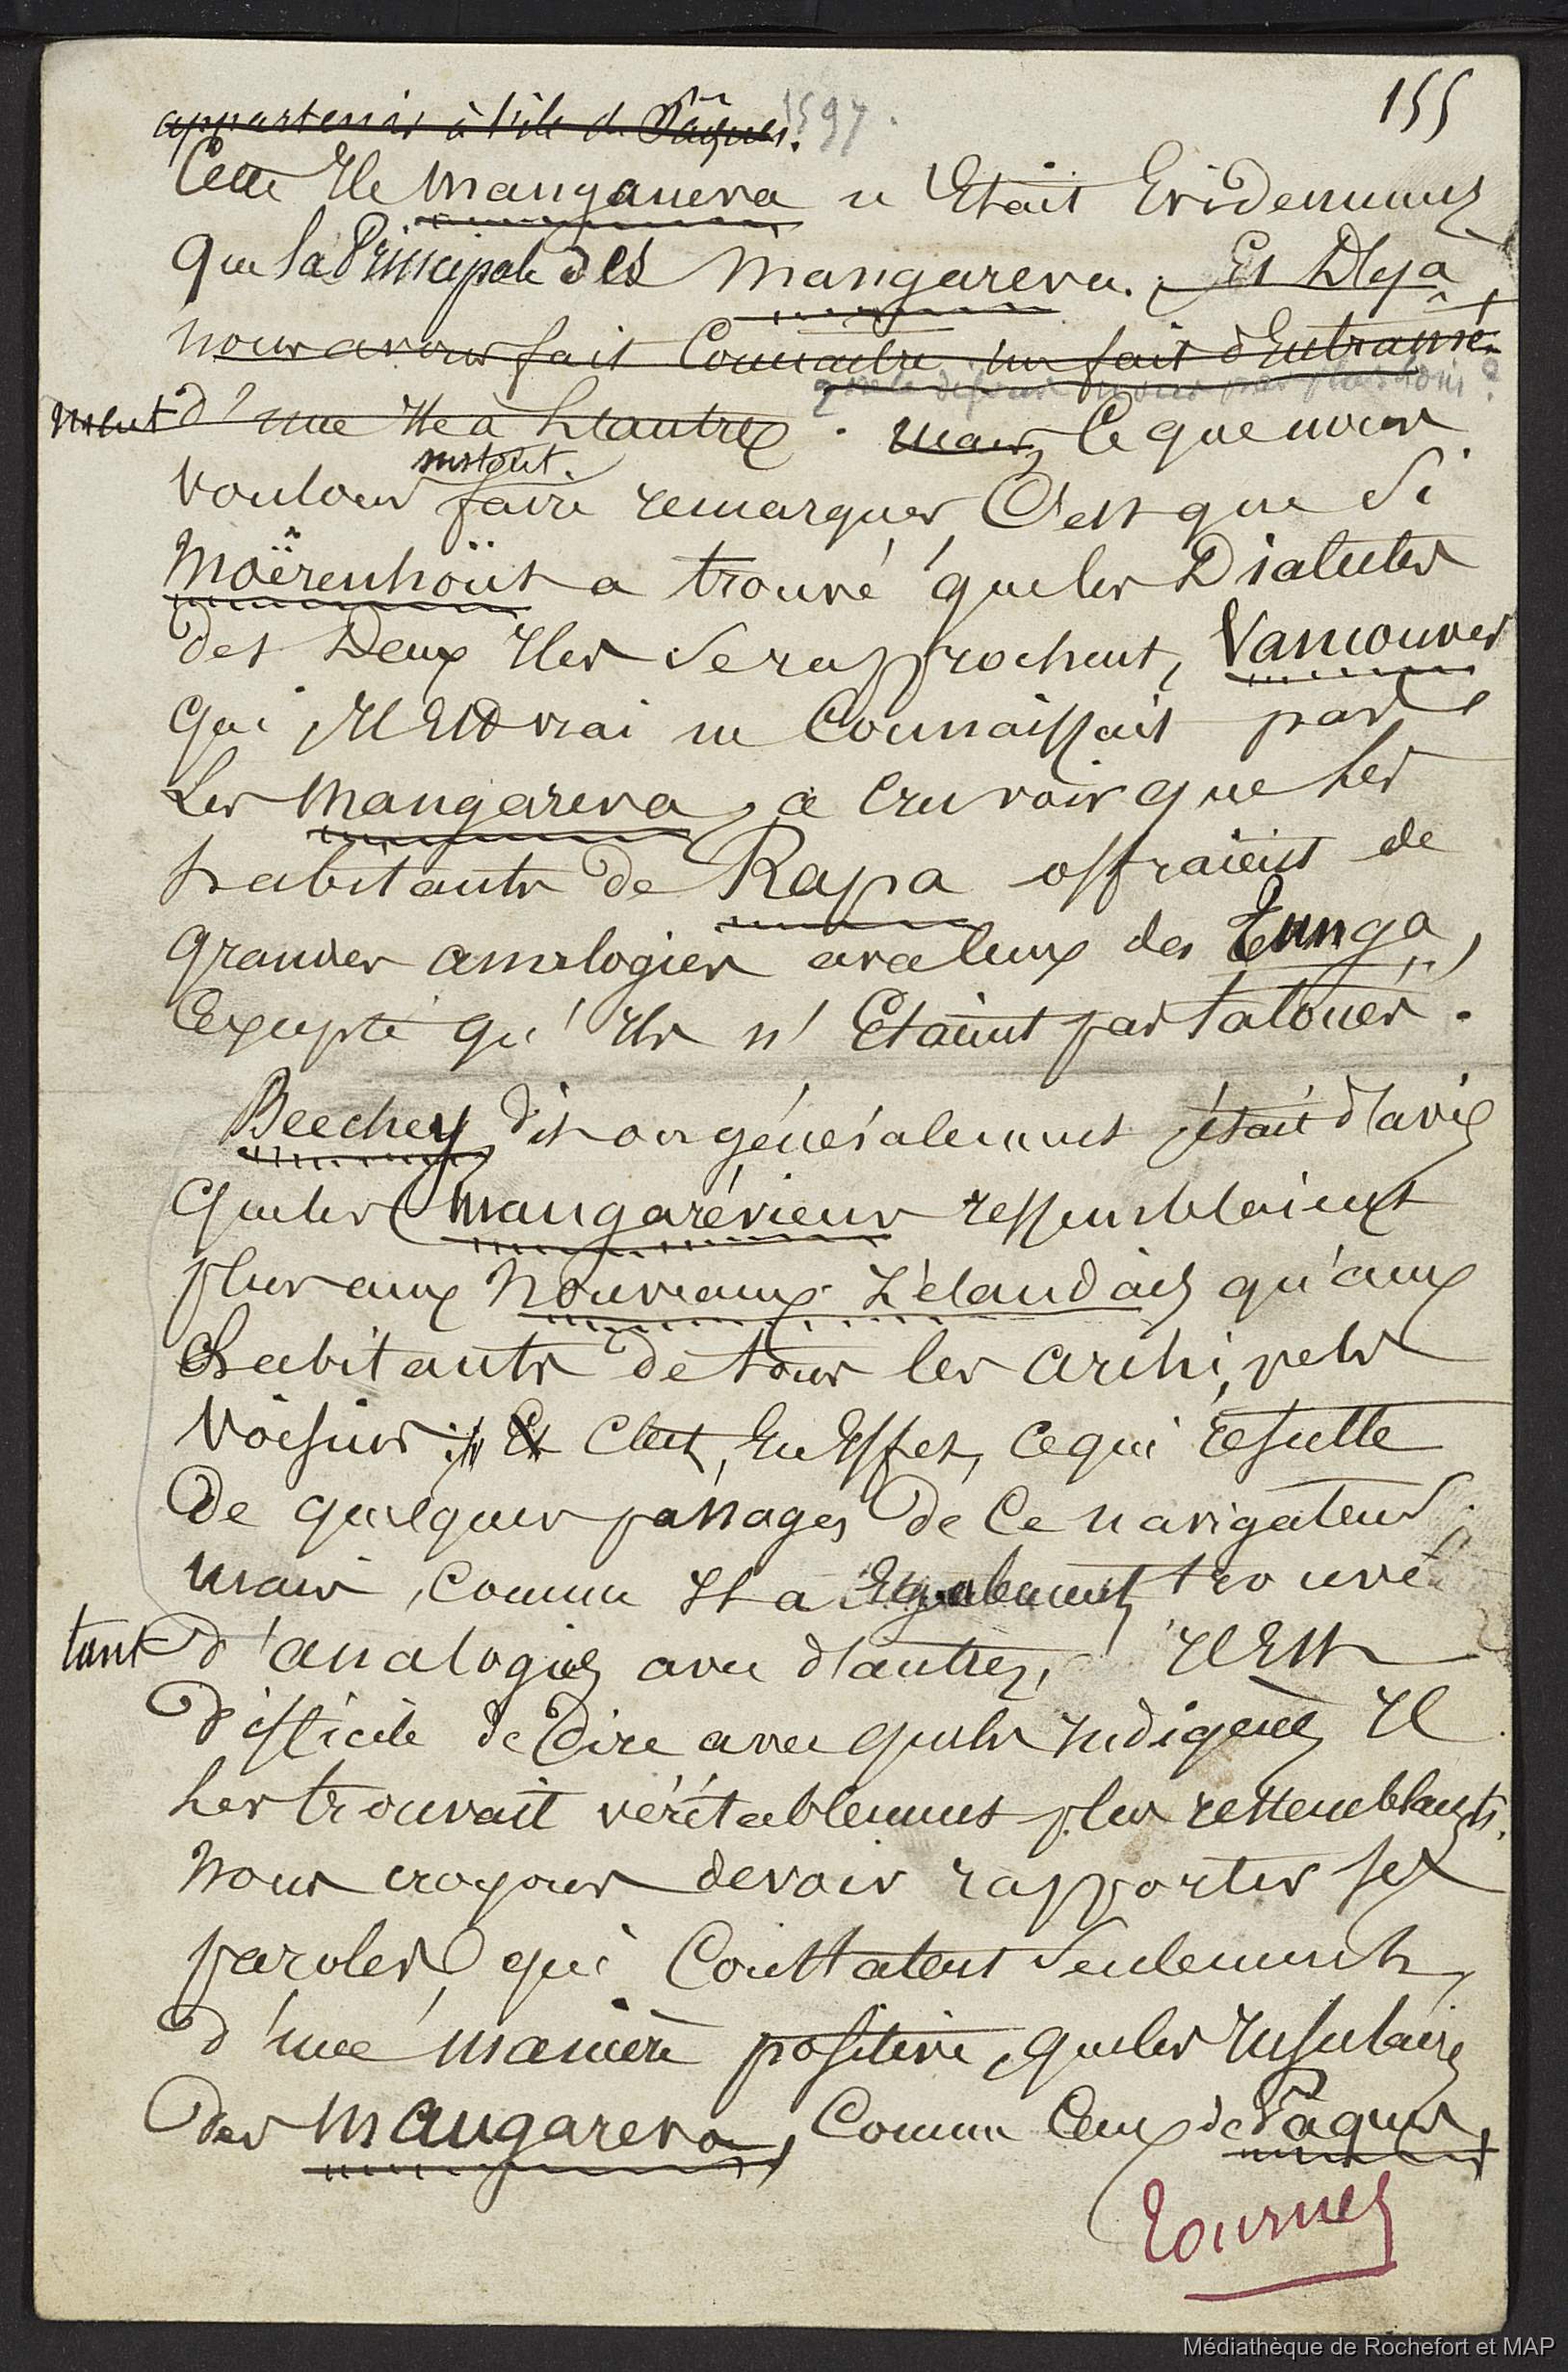 155
appartenir à l'île de Pâques. 1597.
Cette Ile Manganeva n'Etait Evidemment
que la Principale des Mangareva. Et Deja
nous avons fait Connaitre un fait d'Entraine-
ment d'une Ile à L'autre. mais, Ce que nous
surtout
voulons faire remarquer, C'est que Si
Moërenhoüt a trouvé que les Dialectes
des Deux Iles Se rapprochent, Vancouver
qui, Il Est vrai ne Connaissait pas
Les Mangareva, a cru voir que les
habitants de Rapa offraient de
grandes analogies avec ceux des Tunga,
Excepté qu'Ils n'Etaient pas tatoués.
Beechey, dit-on généralement était d'avis
que les Mangaréviens ressemblaient
plus aux Nouveaux Zélandais qu'aux
habitants de tous les archipels
voisins; Et C'est, En Effet, ce qui résulte
De quelques passages de Ce navigateur.
mais, comme Il a Egalement trouvé
tant d'analogies avec d'autres, Il Est
Difficile de Dire avec quels Indigènes Il
Les trouvait véritablement plus ressemblants.
Nous croyons devoir rapporter ses
paroles, qui Constatent Seulement,
d'une manière positive, que les Insulaires
Des Mangareva, Comme Ceux de Pâques,
Tournez
Médiathèque de Rochefort et MAP